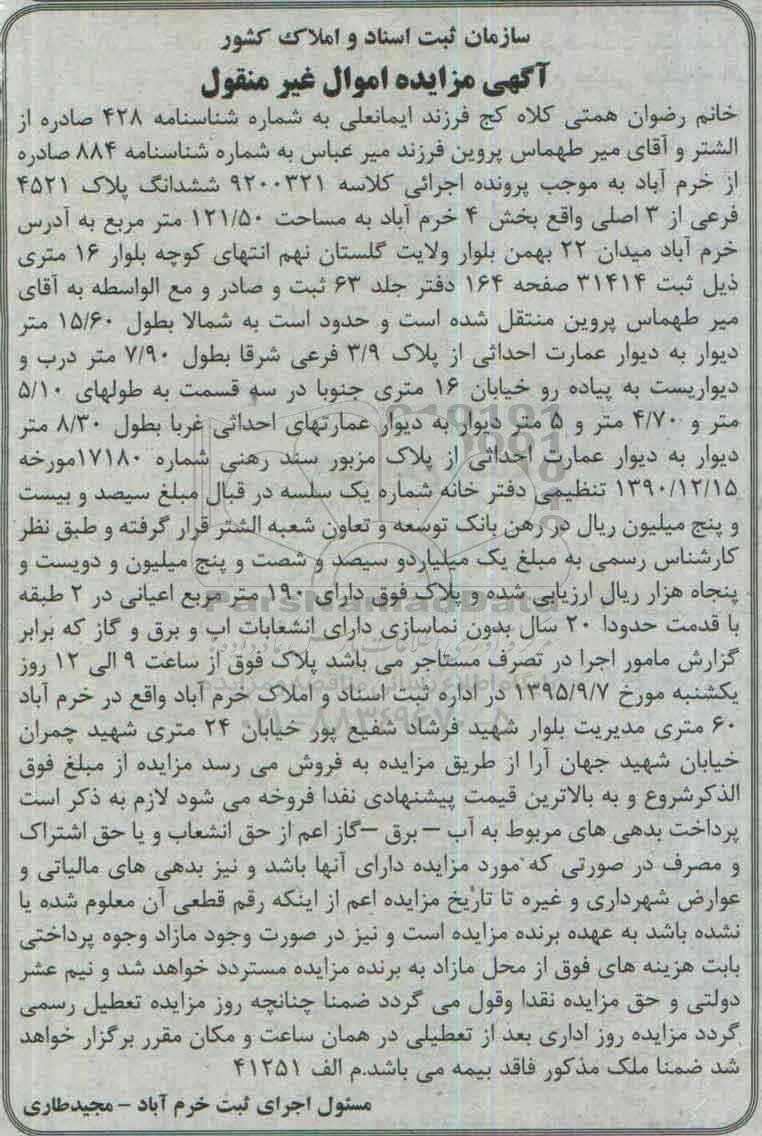 سازمان ثبت اسناد و املاک کشور
آگهی مزایده اموال غیر منقول
خانم رضوان همتی کلاه کج فرزند ایمانعلی به شماره شناسنامه ۴۲۸ صادره از
الشتر و آقای میر طهماس پروین فرزند میر عباس به شماره شناسنامه ۸۸۴ صادره
از خرم آباد به موجب پرونده اجرائی کلاسه ۹۲۰۰۳۲۱ ششدانگ پلاک ۴۵۲۱
فرعی از ۳ اصلی واقع بخش ۴ خرم آباد به مساحت ۱۲۱/۵۰ متر مربع به آدرس
خرم آباد میدان ۲۲ بهمن بلوار ولایت گلستان نهم انتهای کوچه بلوار ۱۶ متری
ذیل ثبت ۳۱۴۱۴ صفحه ۱۶۴ دفتر جلد ۶۳ ثبت و صادر و مع الواسطه به آقای
میر طهماس پروین منتقل شده است و حدود است به شمالا بطول ۱۵/۶۰ متر
دیوار به دیوار عمارت احداثی از پلاک ۳/۹ فرعی شرقا بطول ۷/۹۰ متر درب و
دیواریست به پیاده رو خیابان ۱۶ متری جنوبا در سه قسمت به طولهای ۵/۱۰
متر و ۴/۷۰ متر و ۵ متر دیوار به دیوار عمارتهای احداثی غربا بطول ۸/۳۰ متر
دیوار به دیوار عمارت احداثی از پلاک مزبور سند رهنی شماره ۱۷۱۸۰مورخه
۱۳۹۰/۱۲/۱۵ تنظیمی دفتر خانه شماره یک سلسه در قبال مبلغ سیصد و بیست
و پنج میلیون ریال در رهن بانک توسعه و تعاون شعبه الشتر قرار گرفته و طبق نظر
کارشناس رسمی به مبلغ یک میلیاردو سیصد و شصت و پنج میلیون و دویست و
پنجاه هزار ریال ارزیابی شده و پلاک فوق دارای ۱۹۰ متر مربع اعیانی در ۲ طبقه
با قدمت حدودا ۲۰ سال بدون نماسازی دارای انشعابات اب و برق و گاز که برابر
گزارش مامور اجرا در تصرف مستاجر می باشد پلاک فوق از ساعت ۹ الی ۱۲ روز
یکشنبه مورخ ۱۳۹۵/۹/۷ در اداره ثبت اسناد و املاک خرم آباد واقع در خرم آباد
۶۰ متری مدیریت بلوار شهید فرشاد شفیع پور خیابان ۲۴ متری شهید چمران
خیابان شهید جهان آرا از طریق مزایده به فروش می رسد مزایده از مبلغ فوق
الذکرشروع و به بالاترین قیمت پیشنهادی نقدا فروخه می شود لازم به ذکر است
پرداخت بدهی های مربوط به آب – برق –گاز اعم از حق انشعاب و یا حق اشتراک
و مصرف در صورتی که مورد مزایده دارای آنها باشد و نیز بدهی های مالیاتی و
عوارض شهرداری و غیره تا تاریخ مزایده اعم از اینکه رقم قطعی آن معلوم شده یا
نشده باشد به عهده برنده مزایده است و نیز در صورت وجود مازاد وجوه پرداختی
بابت هزینه های فوق از محل مازاد به برنده مزایده مستردد خواهد شد و نیم عشر
دولتی و حق مزایده نقدا وقول می گردد ضمنا چنانچه روز مزایده تعطیل رسمی
گردد مزایده روز اداری بعد از تعطیلی در همان ساعت و مکان مقرر برگزار خواهد
شد ضمنا ملک مذکور فاقد بیمه می باشد.م الف ۴۱۲۵۱
مسئول اجرای ثبت خرم آباد – مجیدطاری
ParsNamadData